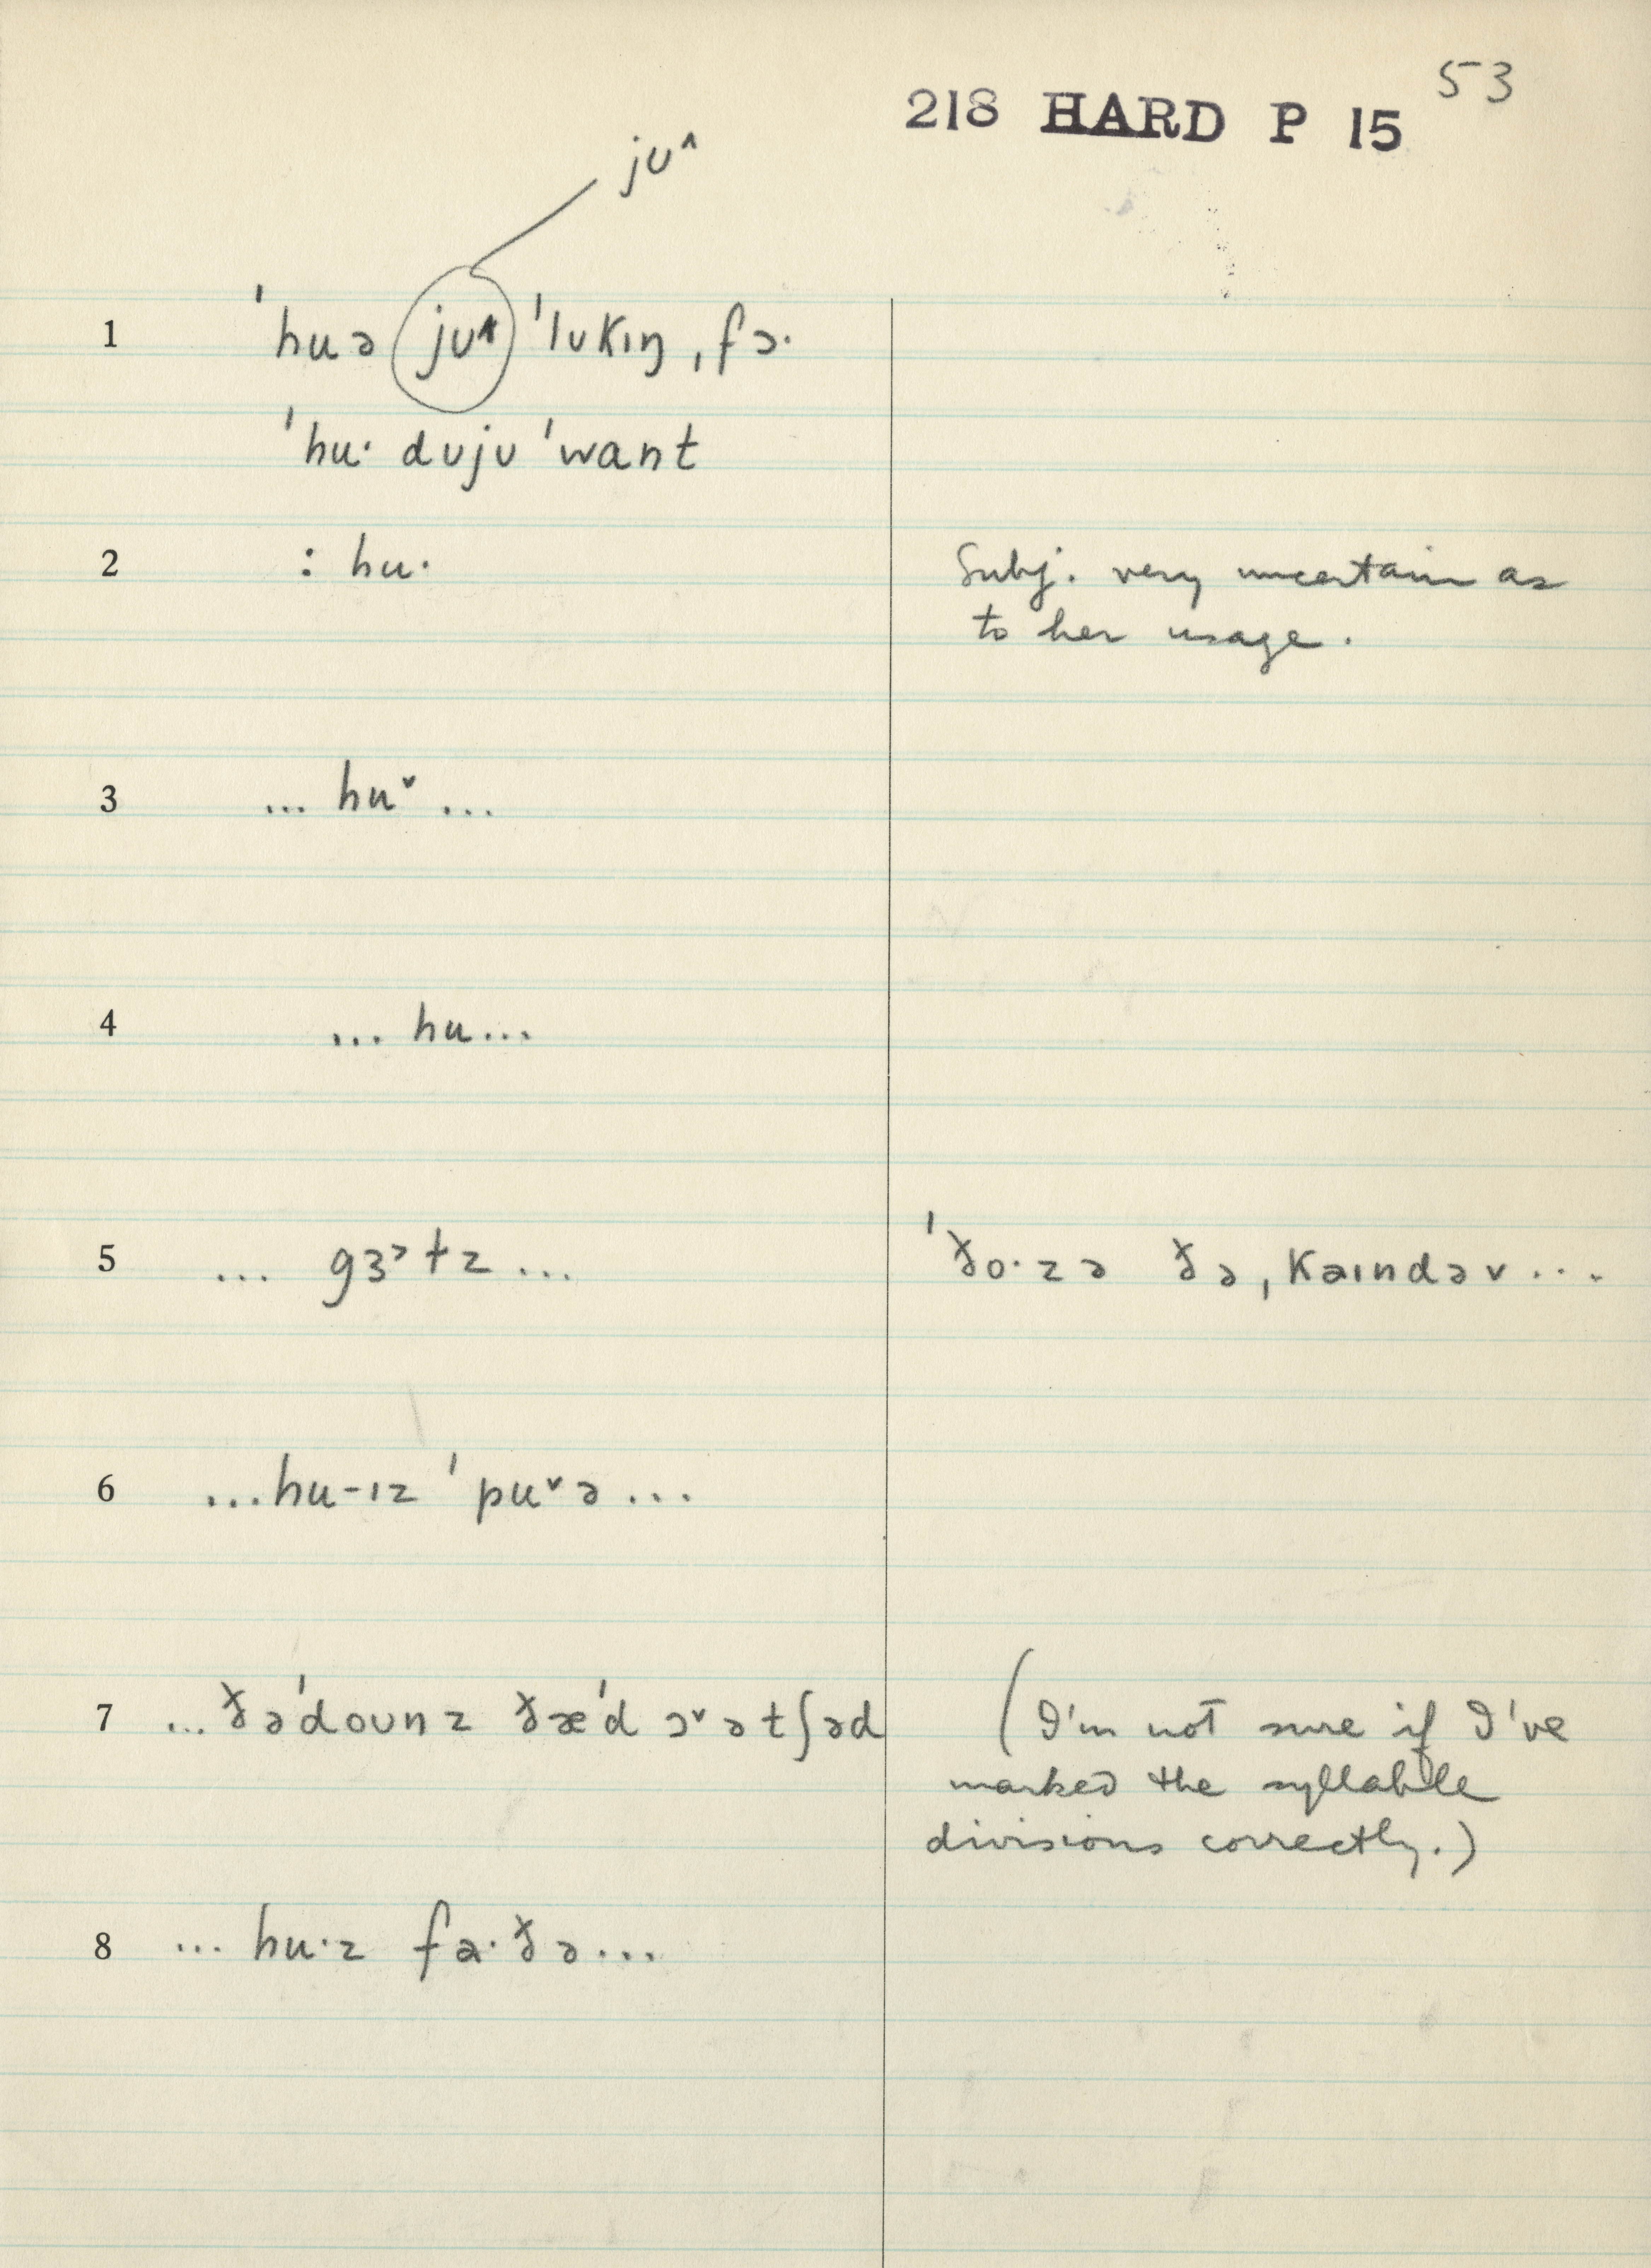 53
218 HARD P 15
jʊ^
1 ˈhuə jʊ^ ˈlʊkɪŋ ˌfɔ·
ˈhu· dʊjʊ ˈwant
2 : hu·
Subj. very uncertain as
to her usage.
3 ... huˇ ...
4 ... hu...
5 ... gɜ˞ɫz ...
ˈðo·zə ðə ˌkaɪndəv ...
6 ...hu-ɪz ˈpuˇə ...
7 ... ðəˈdoʊnz ðæˈd ɔˇətʃəd
(I'm not sure if I've
marked the syllable
divisions correctly.)
8 ... hu·z fa·ðə...